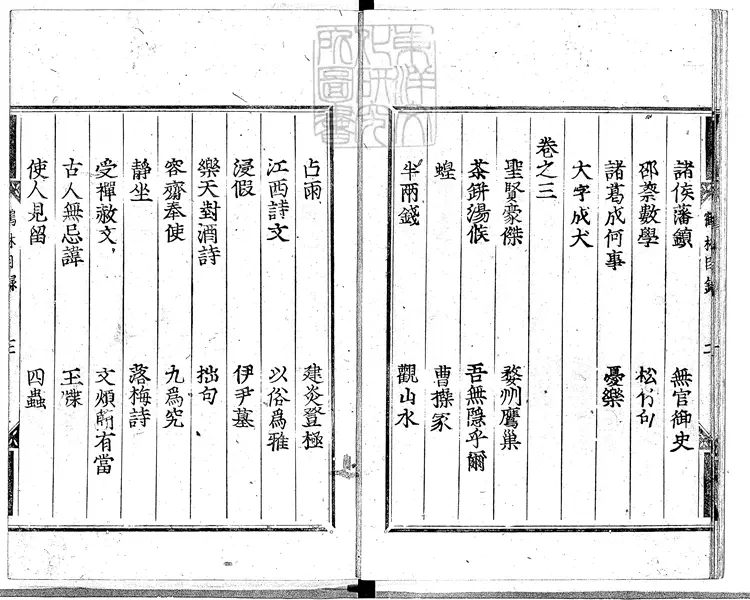 東洋文化研究所圖書
鶴林目錄 二
諸侯藩鎮 無官御史
邵蔡數學 松竹句
諸葛成何事 憂樂
大字成犬
卷之三
聖賢豪傑 婺州鷹巢
茶缾湯候 吾無隱乎爾
蝗 曹操冢
半兩錢 觀山水
占雨 建炎登極
江西詩文 以俗爲雅
浸假 伊尹墓
樂天對酒詩 拙句
容齋奉使 九爲究
靜坐 落梅詩
受禪赦文 文煩簡有當
古人無忌諱 玉牒
使人見留 四蟲
鶴林目錄 三